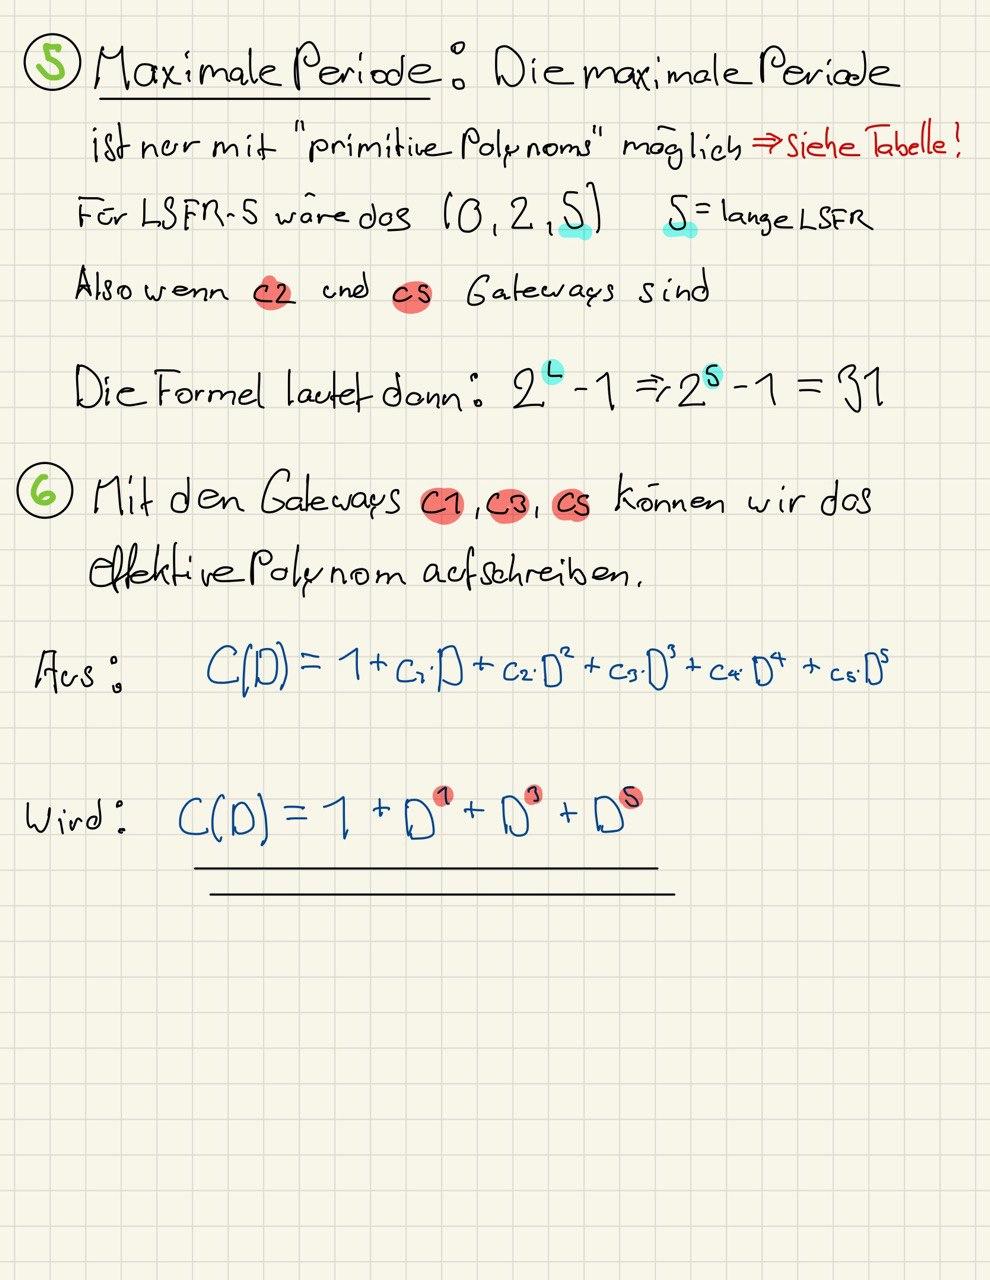 5 Maximale Periode: Die maximale Periode
ist nur mit "primitive Polynoms" möglich ⇒ Siehe Tabelle!
Für LSFR-5 wäre das (0, 2, 5) 5 = länge LSFR
Also wenn C2 und C5 Gateways sind
Die Formel lautet dann: 2^L - 1 ⇒ 2^5 - 1 = 31
6 Mit den Gateways C1, C3, C5 können wir das
effektive Polynom aufschreiben.
Aus: C(D) = 1 + C₁·D + C₂·D² + C₃·D³ + C₄·D⁴ + C₅·D⁵
Wird: C(D) = 1 + D¹ + D³ + D⁵